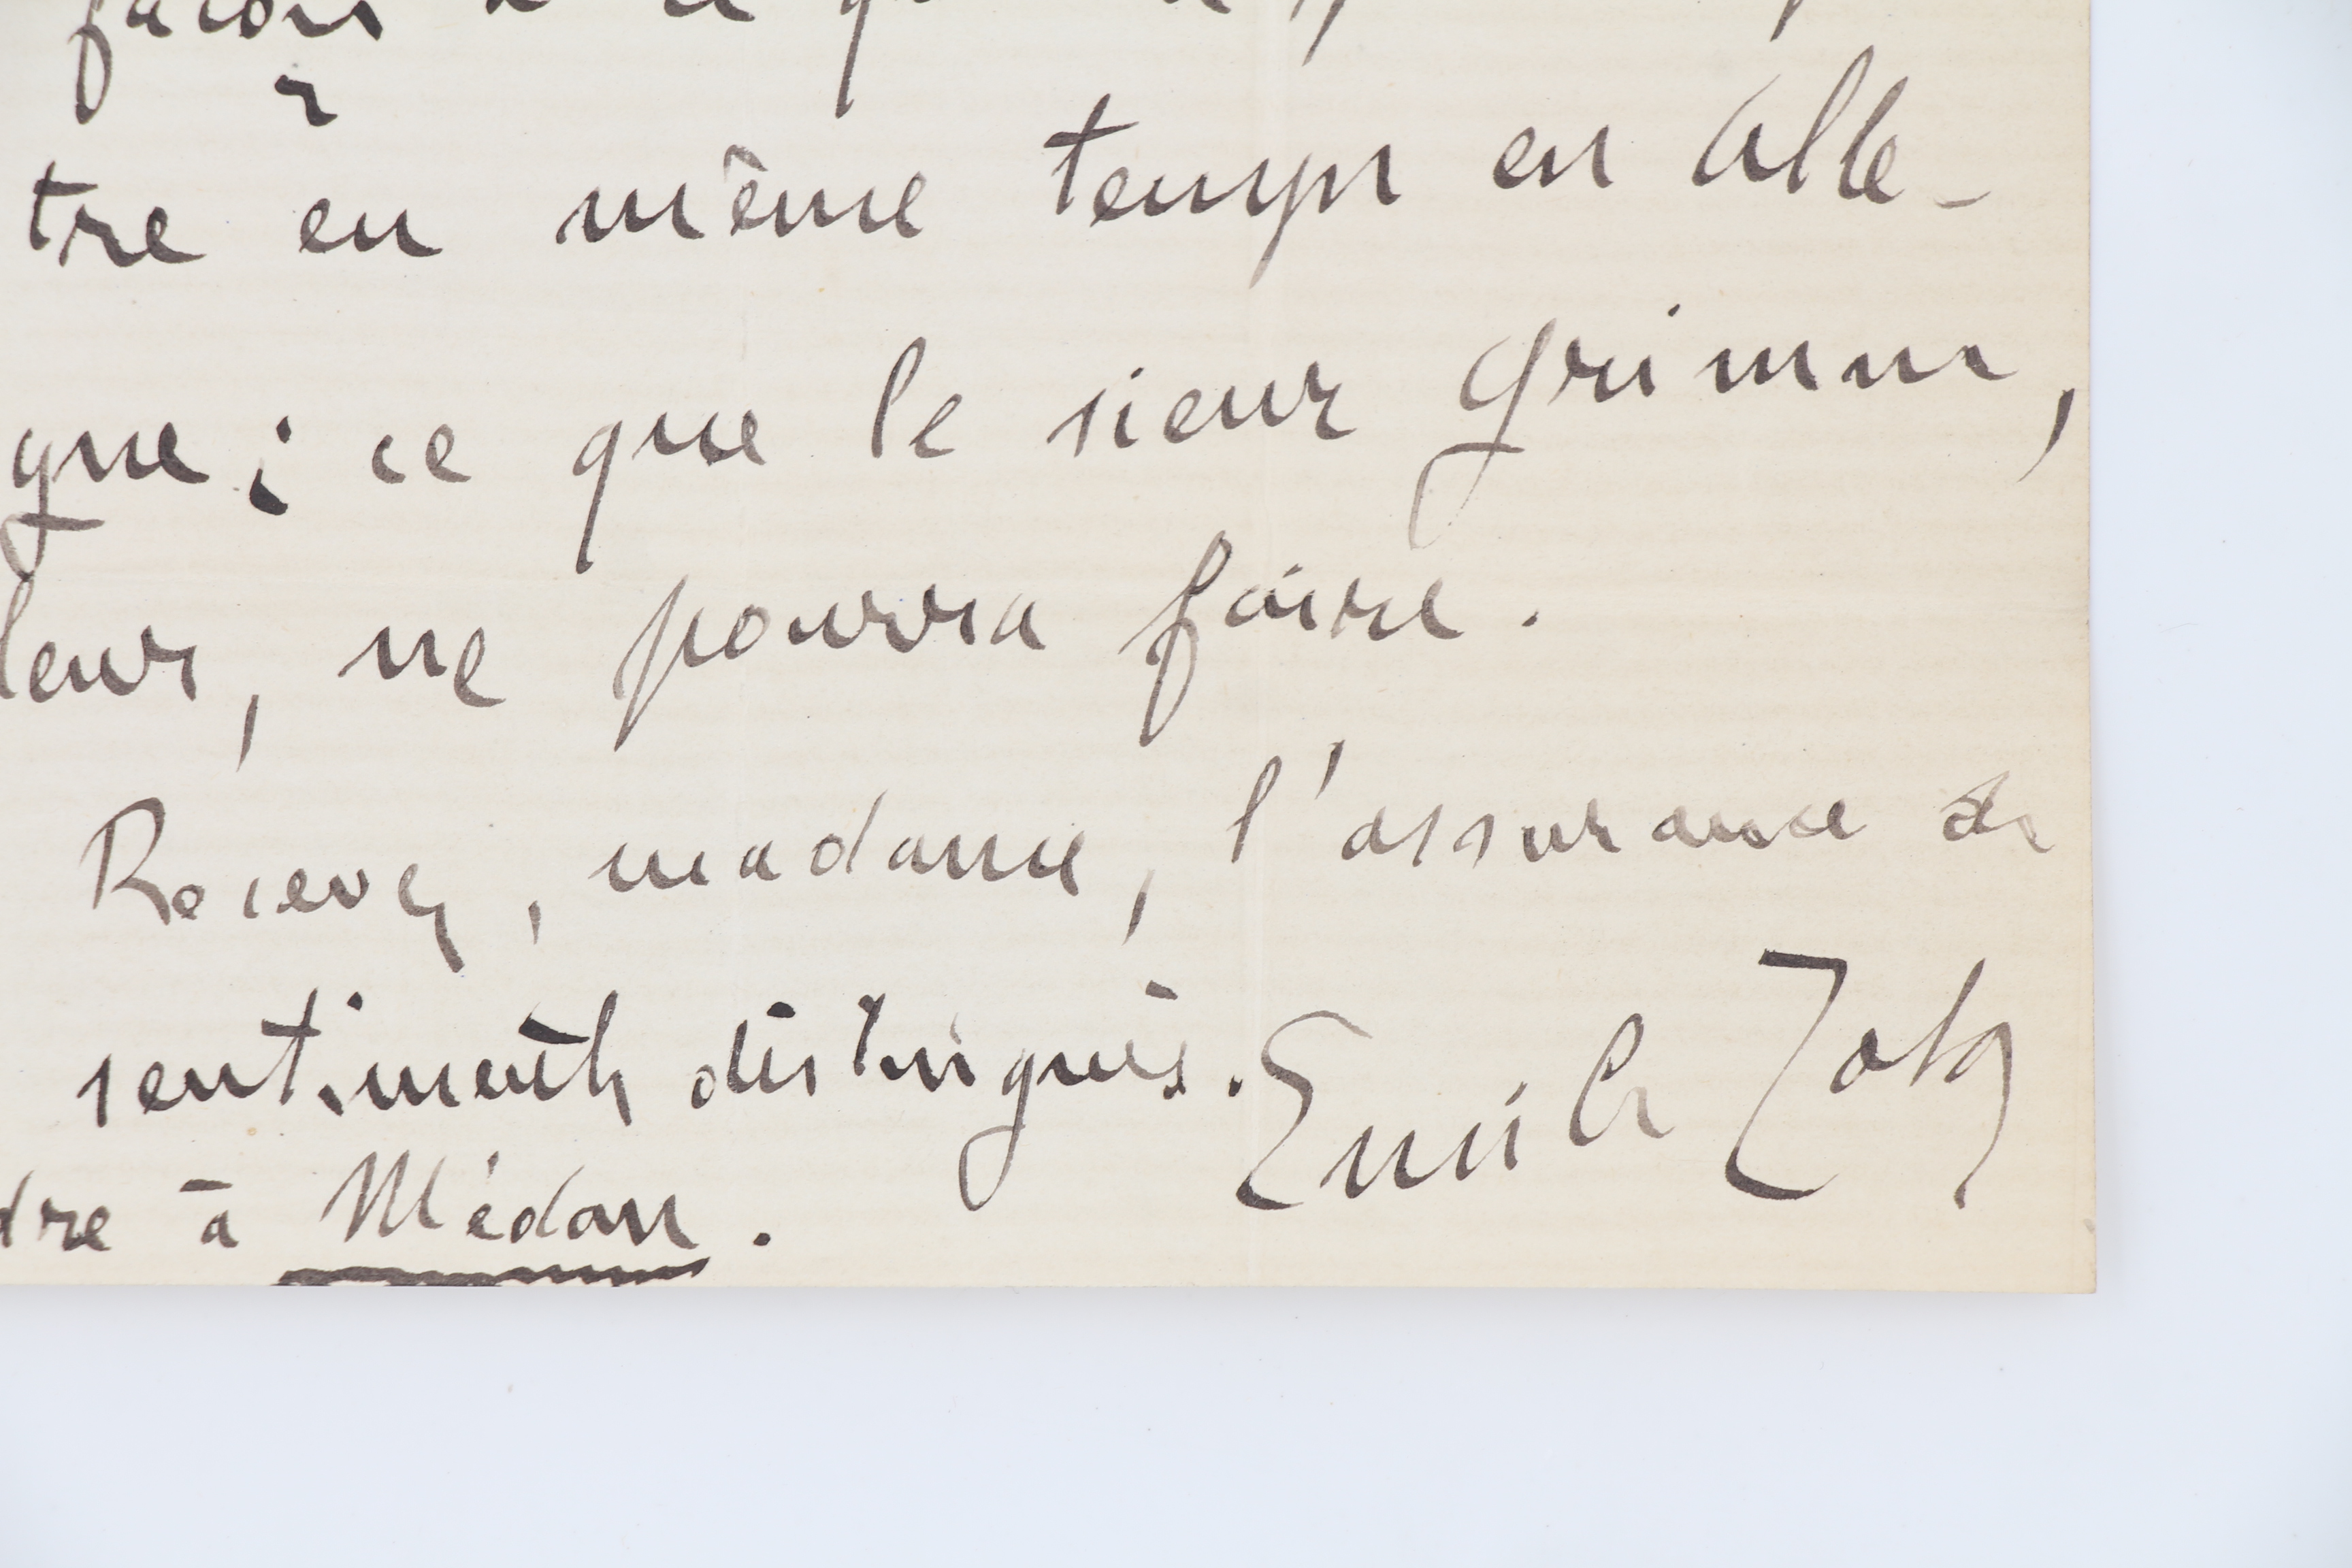 façon
tre en même temps en Alle-
gne ; ce que le sieur Grimm,
leur, ne pourra faire.
Recevez, madame, l'assurance de
sentiments distingués.
Emile Zola
dre à Médan.